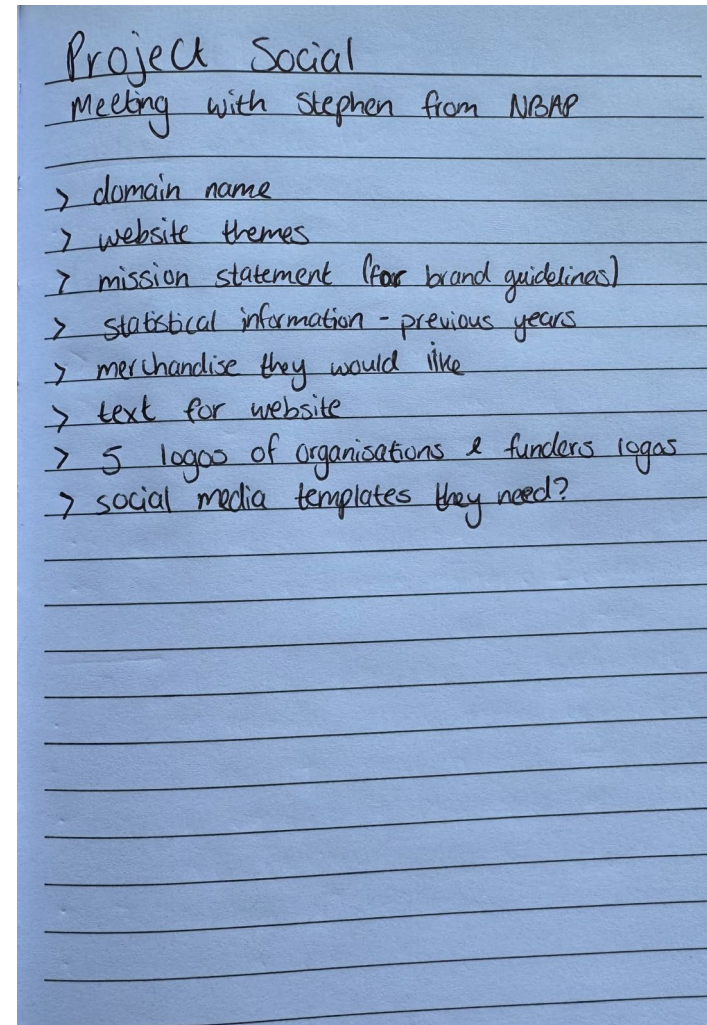 Project Social
Meeting with Stephen from NBAP
> domain name
> website themes
> mission statement (for brand guidelines)
> statistical information - previous years
> merchandise they would like
> text for website
> 5 logos of organisations & funders logos
> social media templates they need?